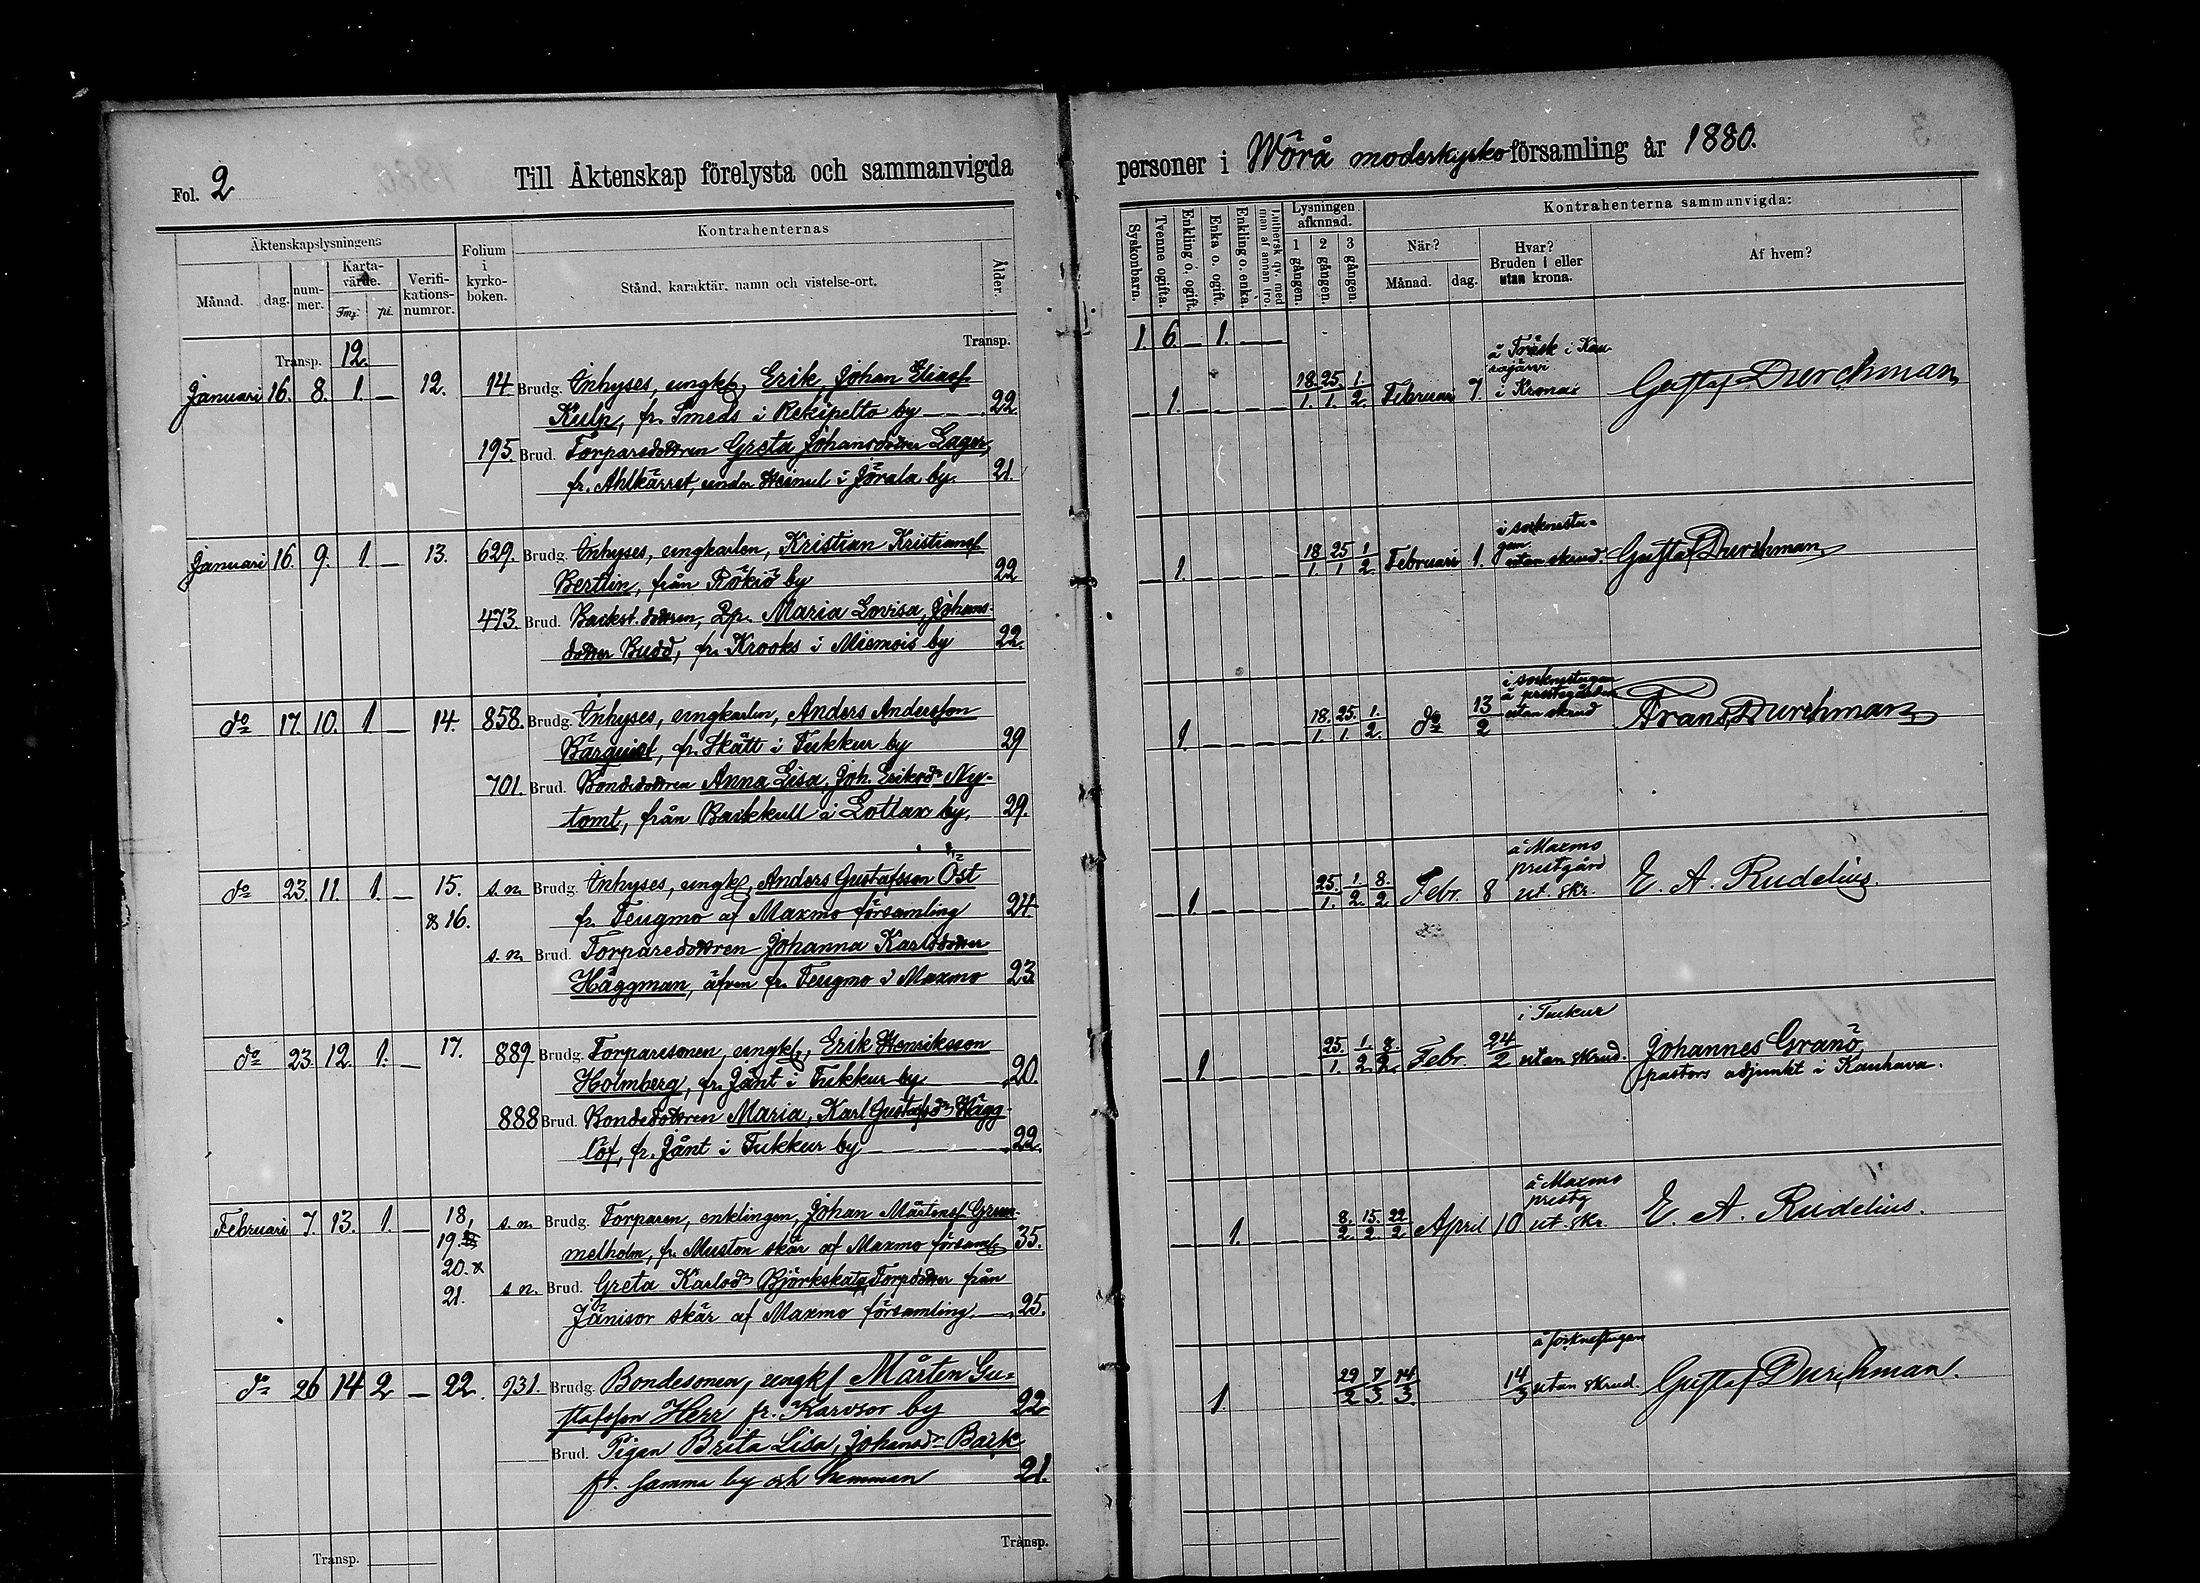 Fol. 2
Till Äktenskap förelysta och sammanvigda
Äktenskapslysningens
Månad.
dag.
nummer.
Karta-värde.
Fmf. pi.
Verifi-kations-numror.
Folium i kyrko-boken.
Kontrahenternas
Stånd, karaktär, namn och vistelse-ort.
Ålder.
Transp. 12. Transp.
Januari 16. 8. 1. — 12. 14. Brudg. Inhyses, ungk, Erik, Johan Eliasf.
Kulp, fr. Smeds i Rekipelto by — 22.
195. Brud. Torparedottren Greta Johansdotter Lager,
fr. Ahlkärret, under Heinul i Jörala by. 21.
Januari 16. 9. 1. — 13. 629. Brudg. Inhyses, ungkarlen, Kristian Kristiansf.
Bertlin, från Rökiö by 22
473. Brud. Backst. dottren, Dp. Maria Lovisa, Johans-
dotter Budd, fr. Krooks i Miemois by 22.
do 17. 10. 1. — 14. 858. Brudg. Inhyses, ungkarlen, Anders Andersson
Bärquist, fr. Skått i Tukkur by 29
701. Brud. Bondedottren Anna Lisa, Joh. Eriksdr Ny-
tomt, från Barkkull i Lotlax by. 29.
do 23. 11. 1. — 15. s. n. Brudg. Inhyses, ungk, Anders Gustafsson Öst
& 16. fr. Teugmo af Maxmo församling 24
s. n. Brud. Torparedottren Johanna Karlsdotter
Häggman, äfven fr. Teugmo i Maxmo 23.
do 23. 12. 1. — 17. 889. Brudg. Torparesonen, ungk, Erik Henriksson
Holmberg, fr. Jånt i Tukkur by 20.
888 Brud. Bondedottren Maria, Karl Gustafsdr Hägg-
löf, fr. Jånt i Tukkur by — 22.
Februari 7. 13. 1. — 18, s. n. Brudg. Torparen, enklingen, Johan Mårtensf. Grum-
19. melholm, fr. Muston skär af Maxmo församl. 35.
20. & s. n. Brud. Greta Karlsdr Björkskata, Torpdotter från
21. Jänisor skär af Maxmo församling. — 25.
do 26 14 2 — 22. 931. Brudg. Bondesonen, ungk Mårten Gu-
stafsson Herr fr. Karvsor by 22
Brud. Pigan Brita Lisa, Johansdr Back
fr. samma by och hemman 21.
Transp. Transp.
personer i Wörå moderkyrko församling år 1880.
Syskonbarn.
Tvenne ogifta.
Enkling o. ogift.
Enka o. ogift.
Enkling o. enka.
Luthersk qv. med man af annan tro.
Lysningen afkunnad.
1 gången.
2 gången.
3 gången.
Kontrahenterna sammanvigda:
När?
Månad.
dag.
Hvar? Bruden i eller utan krona.
Af hvem?
1. 6. — 1. —
1. 18/1. 25/1. 1/2. Februari 7. å Träsk i Kau-
i Krona Gustaf Durchman
1. 18/1. 25/1 1/2. Februari 1. i sockenstu-
gan
utan skrud. Gustaf Durchman
1. 18./1. 25./1 1./2. do 13/2 i sockenstugan
å prestgården
utan skrud Frans Durchman
1. 25./1. 1./2. 8./2 Febr. 8 å Maxmo
prestgård
ut. skr. E. A. Rudelius.
1. 25./1. 1./2. 8./2. Febr. 24/2 i Tukur
utan skrud. Johannes Granö,
pastors adjunkt i Kauhava.
1. 8./2 15./2 22/2 April 10 å Maxmo
prestg
ut. skr. E. A. Rudelius.
1. 29/2 7/3. 14/3. 14/3 å sockenstugan
utan skrud. Gustaf Durchman.